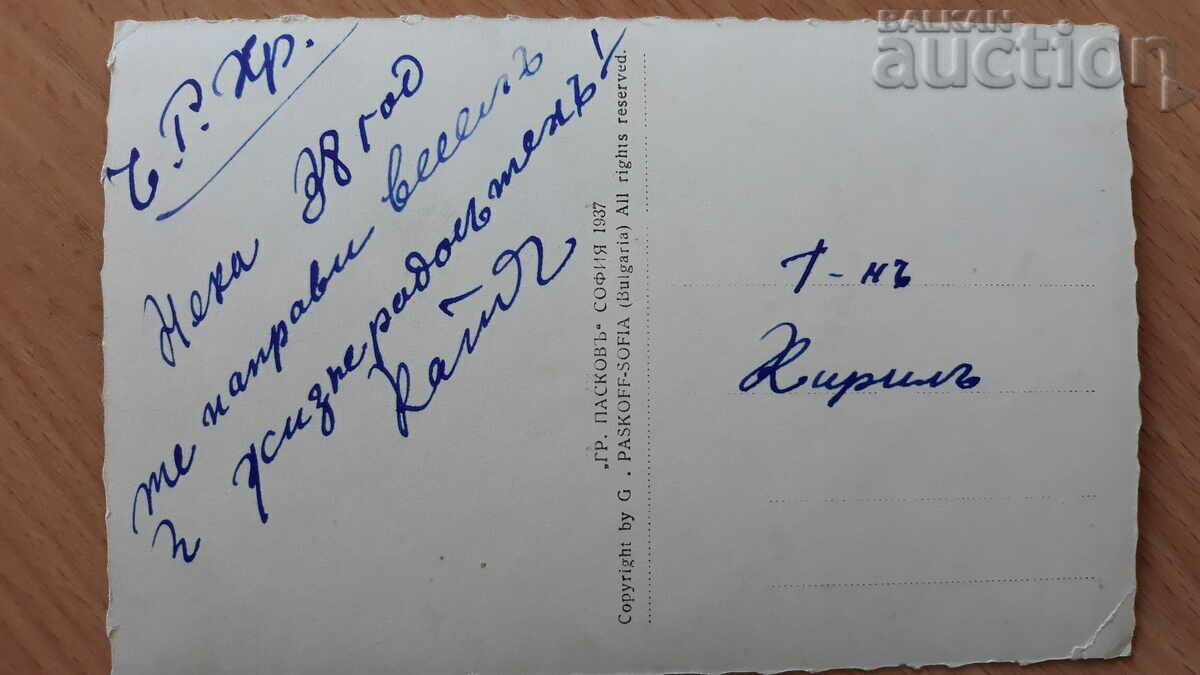 Ч. Р. Хр.
Нека 38 год
те направи веселъ
и жизнерадостенъ!
„ГР. ПАСКОВЪ“ СОФИЯ 1937
Copyright by G. PASKOFF-SOFIA (Bulgaria) All rights reserved.
Г-нъ
Кирилъ
BALKAN
auction